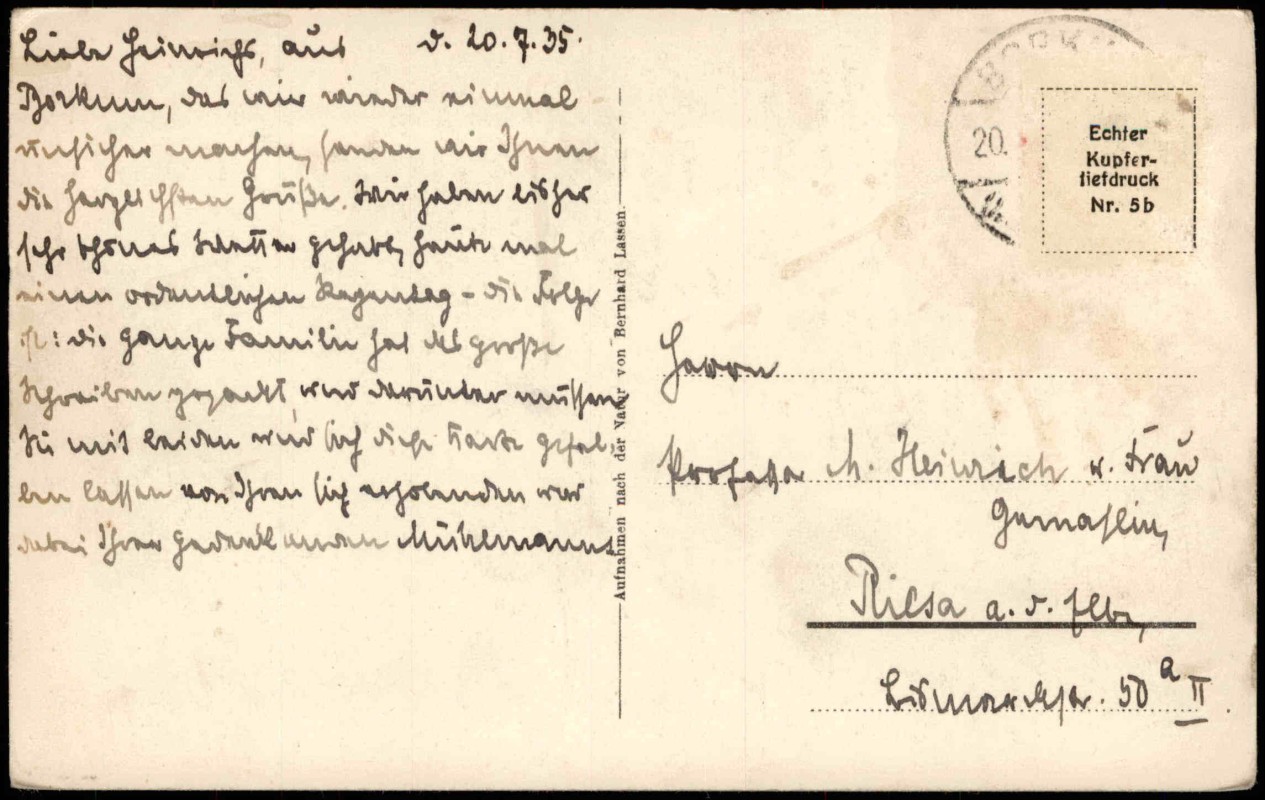 Liebe Heinrichs, aus d. 20.7.35.
Borkum, das wir wieder einmal
unsicher machen, senden wir Ihnen
die herzlichsten Grüße. Wir haben bisher
sehr schönes Wetter gehabt, heute mal
einen ordentlichen Regentag – die Folge
ist: die ganze Familie hat das große
Schreiben gepackt, und darunter müssen
Sie mit leiden und sich diese Karte gefal-
len lassen von Ihren sich erholenden und
dabei Ihrer gedenkenden Mühlmanns
Aufnahmen nach der Natur von Bernhard Lassen.
BORKUM
20.
Echter
Kupfer-
tiefdruck
Nr. 5b
Herrn
Professor M. Heinrich u. Frau
Gemahlin,
Riesa a. d. Elbe,
Bismarckstr. 50 a II